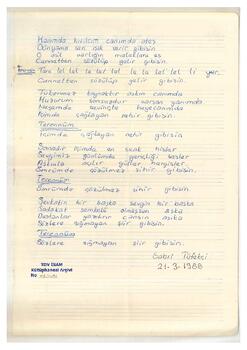 Kanımda kıvılcım canımda ateş
Dünyama sen ışık verir gibisin
O asil varlığın meleklere eş
Cennetten süzülüp gelir gibisin
lel lel le lel lel le le lel lel li yar
Cennetten süzülüp gelir gibisin
Tükenmez kaynaktır aşkın canımda
Huzurum sonsuzdur varsan yanımda
Neşemde sevinçte heyecanımda
İçimde çağlayan nehir gibisin
Terennüm
İçimde çağlayan nehir gibisin
Sensin içimde en sıcak hisler
Sevgimiz gönlümde gençliği besler
Aşkınla
Ömrümde çözülmez sihir gibisin
Terennüm
Ömrümde çözülmez sihir gibisin
Şefkatin bir başka sevgin bir başka
Sadakat sembolü olmuşsun aşka
Destanlar yazdırır
Sözlere sığmayan şiir gibisin
Terennüm
Sözlere sığmayan şiir gibisin
Sabri Tüfekçi
21-3-1988
TDV İSAM
Kütüphanesi Arşivi
No